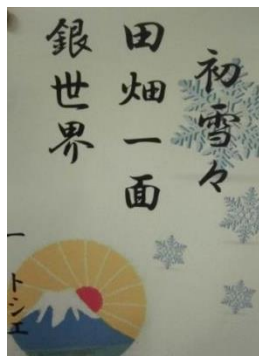 初雪々
田畑一面
銀世界
一トシエ